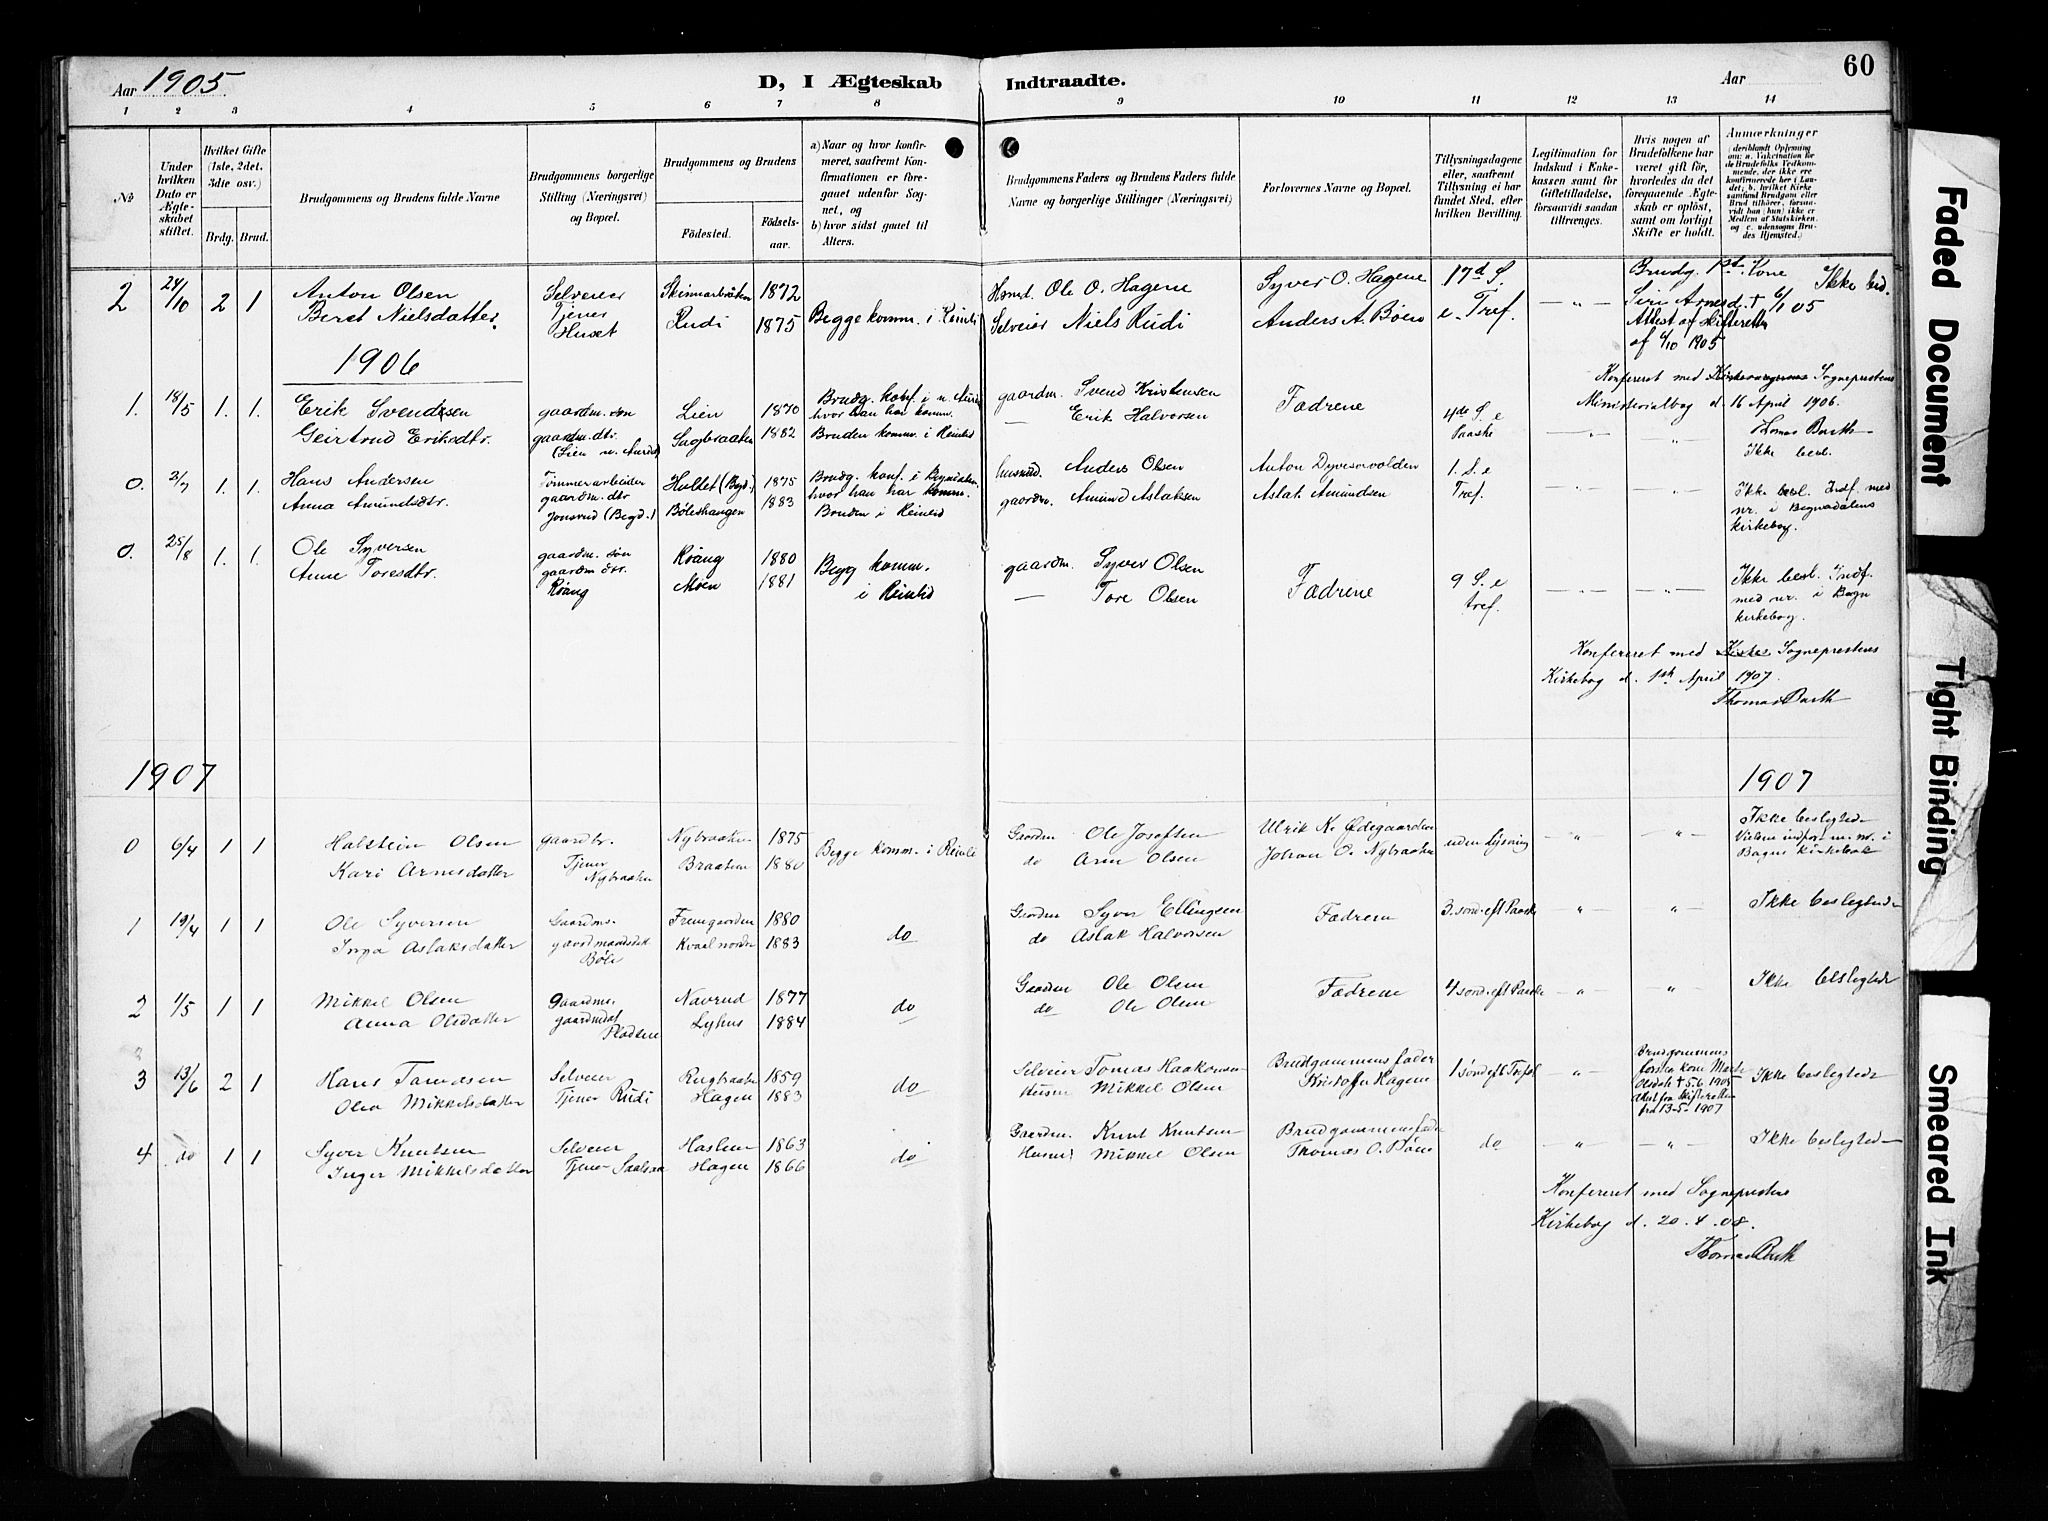 Aar 1905.
D, I Ægteskab Indtraadte.
Aar
60
1 2 3 4 5 6 7 8 9 10 11 12 13 14
№
Under hvilken Dato er Ægteskabet stiftet.
Hvilket Gifte (1ste, 2det, 3die osv.)
Brdg. Brud.
Brudgommens og Brudens fulde Navne
Brudgommens borgerlige Stilling (Næringsvei) og Bopæl.
Brudgommens og Brudens
Födested. Födselsaar.
a) Naar og hvor konfirmeret, saafremt Konfirmationen er foregaaet udenfor Sognet, og
b) hvor sidst gaaet til Alters.
Brudgommens Faders og Brudens Faders fulde Navne og borgerlige Stillinger (Næringsvei)
Forlovernes Navne og Bopæl.
Tillysningsdagene eller, saafremt Tillysning ei har fundet Sted, efter hvilken Bevilling.
Legitimation for Indskud i Enkekassen samt for Giftetilladelse, forsaavidt saadan tiltrænges.
Hvis nogen af Brudefolkene har været gift før, hvorledes da det foregaaende Ægteskab er opløst, samt om lovligt Skifte er holdt.
Anmærkninger (deriblandt Oplysning om: a. Vakcination for de Brudefolks Vedkommende, der ikke ere konfirmerede her i Landet; b. hvilket Kirkesamfund Brudgom eller Brud tilhører, forsaavidt han (hun) ikke er Medlem af Statskirken, og c. udensogns Brudes Hjemsted.)
2 24/10 2 1 Anton Olsen Selveier Skinnarbråten 1872 Husmd. Ole O. Hagene Syver O. Hagene 17d S. Brudg. 1st. Kone Ikke besl.
Beret Nielsdatter. Tjener Rudi 1875 Begge komm. i Reinli Selveier Niels Rudi Anders A. Böen e. Tref. — " — Siri Arnesd. † 6/1 05
Huset Attest af skifteretten
af 6/10 1905
1906
Konfereret med Sogneprestens
Ministerialbog d. 16 April 1906.
Thomas Barth
1. 18/5 1. 1. Erik Svendsen gaardm. søn Lien 1870 Brudg. konf. i n. Aurdal gaardm. Svend Kristensen Fædrene 4de S. e
hvor han har komm.
Geirtrud Eriksdtr. gaardm. dtr. Sagbraaten 1882 Bruden komm. i Reinlid — Erik Halvorsen Paaske — " — Ikke besl.
(Lien n. Aurdal)
0. 3/7 1. 1. Hans Andersen Tømmerarbeider Holtet (Begd.) 1875 Brudg. konf. i Begnadalen husmd. Anders Olsen Anton Dyvesarvolden 1. S. e
hvor han har komm.
Anna Amundsdtr. gaardm. dtr Bøleshaugen 1883 Bruden i Reinlid gaardm. Amund Aslaksen Aslak Amundsen Tref. — " — Ikke besl. Indf. med
Jonsrud (Begd.) nr. i Begnadalens
kirkebog.
0. 25/8 1. 1. Ole Syversen gaardm. søn Röang 1880 Begg komm. gaardm. Syver Olsen Fædrene 9 S. e
Anne Toresdtr. gaardm dtr. Moen 1881 i Reinlid — Tore Olsen tref. — " — Ikke besl. Indf.
Röang med nr. i Bagn
kirkebog.
Konfereret med Sogneprestens
Kirkebog d. 1ste April 1907.
Thomas Barth
1907 1907
0 6/4 1 1 Halstein Olsen gaardbr. Nybraaten 1875 Begge komm. i Reinli Gaardm Ole Josefsen Ulrik K. Ødegaarden uden Lysning — " — Ikke beslegtede
Kari Arnesdatter Tjener Braaten 1880 do Arne Olsen Johan O. Nybraaten Vielsen indført m. nr. i
Nybraaten Bagns kirkebok
1 19/4 1 1 Ole Syversen Gaardms. Fremgaarden 1880 do Gaardm Syver Ellingsen Fædrene 3. sønd. eft Paaske — " — Ikke beslegtede
Inga Aslaksdatter gaardmandsdat Kvaal nordre 1883 do Aslak Halvorsen
Böle
2 1/5 1 1 Mikkel Olsen Gaardms. Navrud 1877 do Gaardm Ole Olsen Fædrene 4 sønd. eft Paaske — " — Ikke beslegtede
Anna Olsdatter gaardmdat Lyhus 1884 do Ole Olsen
Pladsene
3 13/6 2 1 Hans Tomasen Selveier Rugbraaten 1859 do Selveier Tomas Haakonsen Brudgommens fader 1 sønd eft Tref — " — Brudgommens Ikke beslegtede
Olea Mikkelsdatter Tjener Rudi Hagen 1883 Husm Mikkel Olsen Kristoffer Hagene første kone Marit
Olsdatr † 5.6.1905
Attest fra Skifteretten
fra 13-5-1907
4 do 1 1 Syver Knutsen Selveier Haslien 1863 do Gaardm. Knut Knutsen Brudgommens fader do — " — Ikke beslegtede
Inger Mikkelsdatter Tjener Hagen 1866 Husmd Mikkel Olsen Thomas O. Böne
Konfereret med Sogneprestens
Kirkebog d. 20.4.08.
Thomas Barth
Faded Document
Tight Binding
Smeared Ink